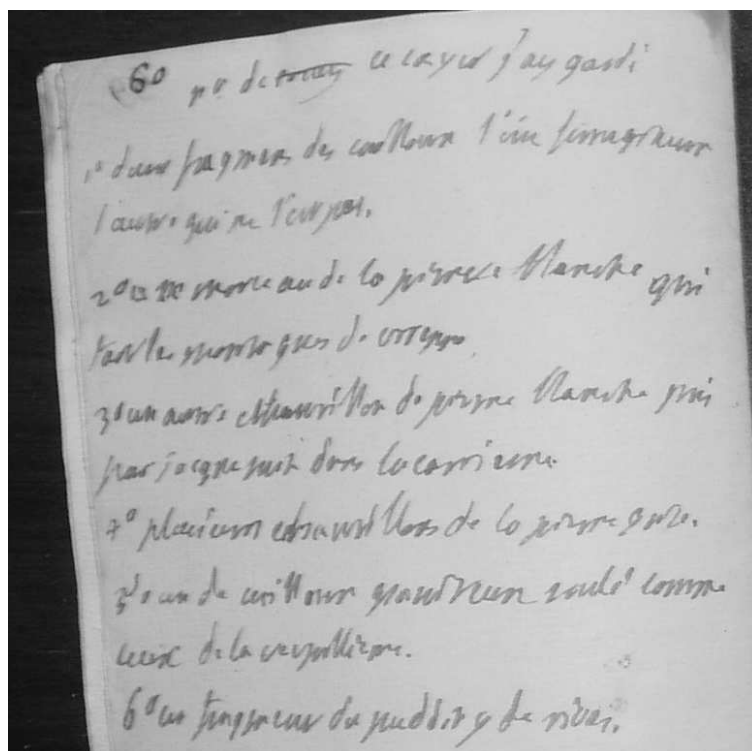 60 no de ce cayer j'ay gardé
1o deux fragmens des cailloux l'un ferrugineux
l'autre qui ne l'est pas.
2o un morceau de la pierre blanche qui
fait les montagnes de voreppe
3o un autre echantillon de pierre blanche pris
par jacquemit dans la carriere.
4o plusieurs echantillons de la pierre grise.
5o un de cailloux graniteux roulé comme
ceux de la verpilliere.
6o un fragment du pudding de rives.